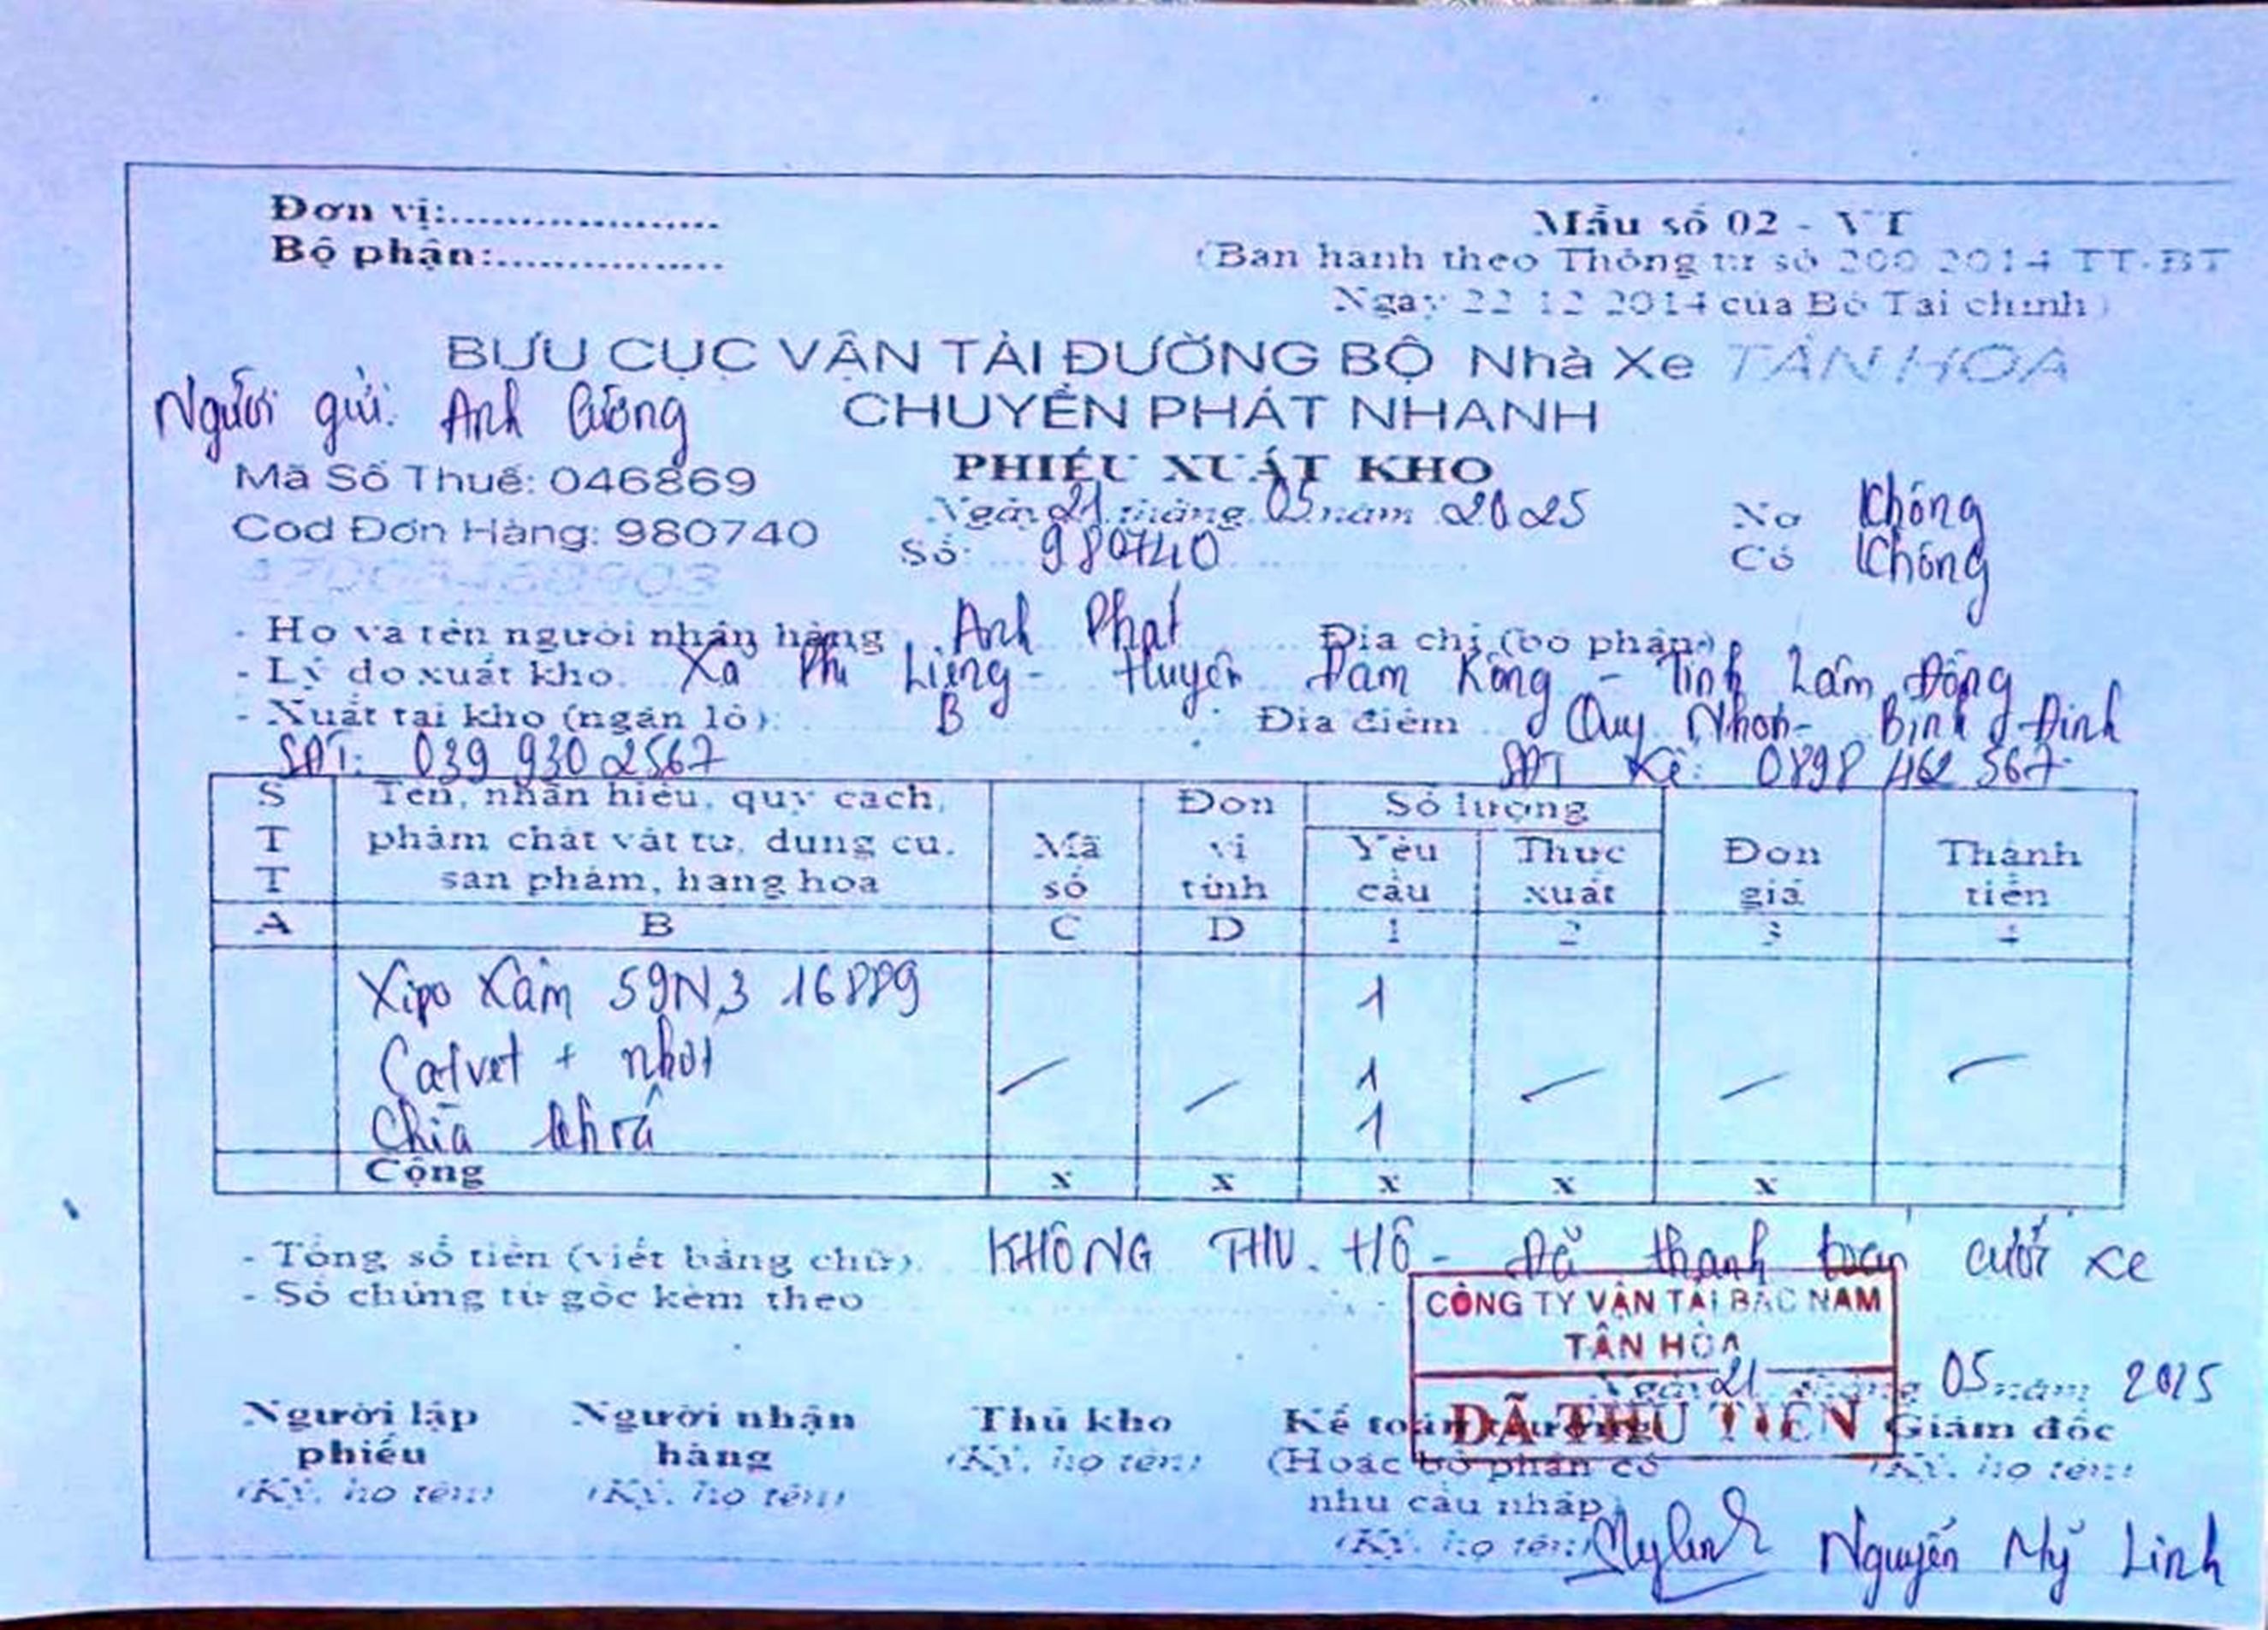 Đơn vị:....................
Bộ phận:.................
Mẫu số 02 - VT
(Ban hành theo Thông tư số 200 2014 TT-BT
Ngày 22 12 2014 của Bộ Tài chính)
BƯU CỤC VẬN TẢI ĐƯỜNG BỘ Nhà Xe TÂN HOA
Người gửi: Anh Cương
CHUYỂN PHÁT NHANH
Mã Số Thuế: 046869
PHIẾU XUẤT KHO
Cod Đơn Hàng: 980740
Ngày 21 tháng 05 năm 2025
Nợ Không
Số: 980740
Có Không
- Họ và tên người nhận hàng Anh Phat Địa chỉ (bộ phận)
- Lý do xuất kho. Xã Phi Liêng - Huyện Đam Rông - Tỉnh Lâm Đồng
- Xuất tại kho (ngăn lô): B Địa điểm Quy Nhơn - Bình Định
SĐT: 039 930 2567
SĐT Kế: 0898 462 567
STT
Tên, nhãn hiệu, quy cách,
phẩm chất vật tư, dụng cụ,
sản phẩm, hàng hoá
Mã số
Đơn vị tính
Số lượng
Yêu cầu
Thực xuất
Đơn giá
Thành tiền
A B C D 1 2 3 4
Xipo Xám 59N3 16889 1
Catvet + nhot 1
Chìa khoá 1
Cộng x x x x x
- Tổng số tiền (viết bằng chữ). KHÔNG THU. HỘ - Đã thanh toán cước xe
- Số chứng từ gốc kèm theo
CÔNG TY VẬN TẢI BẮC NAM
TÂN HÒA
ĐÃ THU TIỀN
Ngày 21 tháng 05 năm 2025
Người lập phiếu
(Ký, họ tên)
Người nhận hàng
(Ký, họ tên)
Thủ kho
(Ký, họ tên)
Kế toán trưởng
(Hoặc bộ phận có
nhu cầu nhập)
(Ký, họ tên)
Giám đốc
(Ký, họ tên)
Mylinh Nguyễn Mỹ Linh